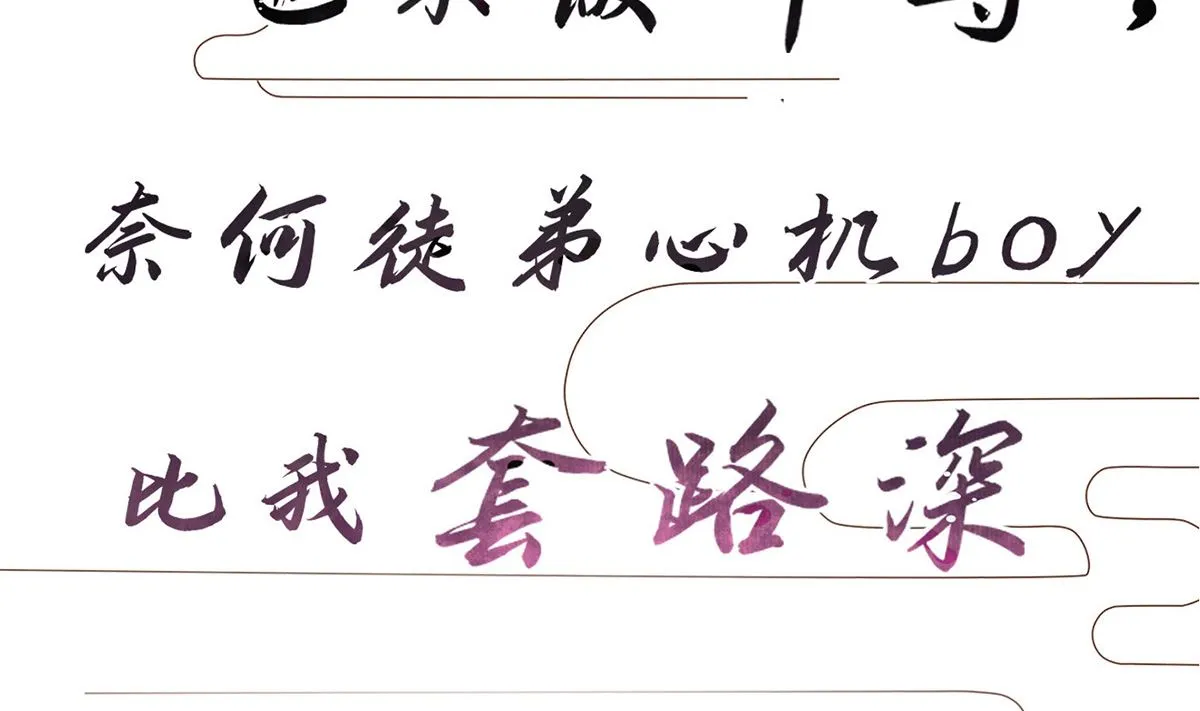 奈何徒弟心机boy
比我套路深